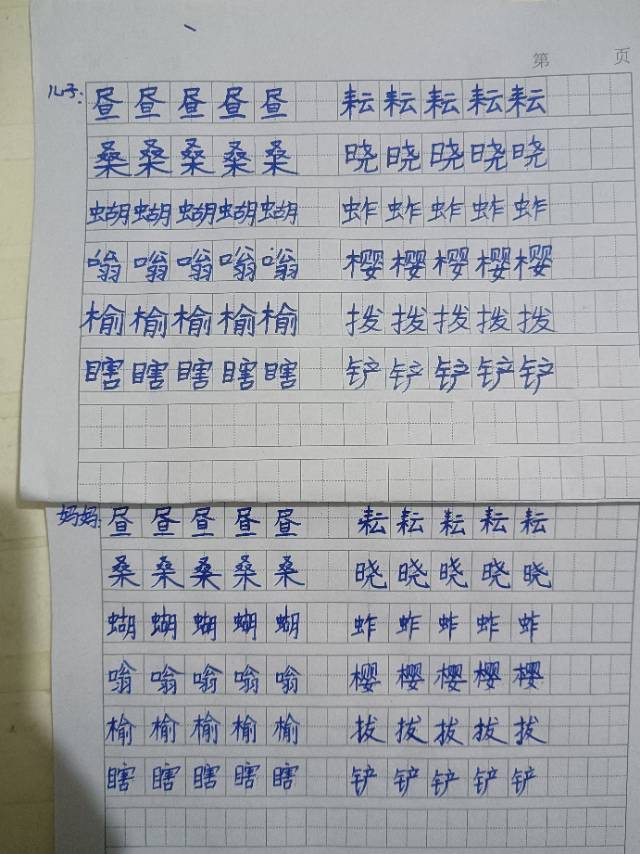 第 页
儿子: 昼昼昼昼昼 耘耘耘耘耘
桑桑桑桑桑 晓晓晓晓晓
蝴蝴蝴蝴蝴 蚱蚱蚱蚱蚱
嗡嗡嗡嗡嗡 樱樱樱樱樱
榆榆榆榆榆 拨拨拨拨拨
瞎瞎瞎瞎瞎 铲铲铲铲铲
妈妈: 昼昼昼昼昼 耘耘耘耘耘
桑桑桑桑桑 晓晓晓晓晓
蝴蝴蝴蝴蝴 蚱蚱蚱蚱蚱
嗡嗡嗡嗡嗡 樱樱樱樱樱
榆榆榆榆榆 拔拔拔拔拔
瞎瞎瞎瞎瞎 铲铲铲铲铲